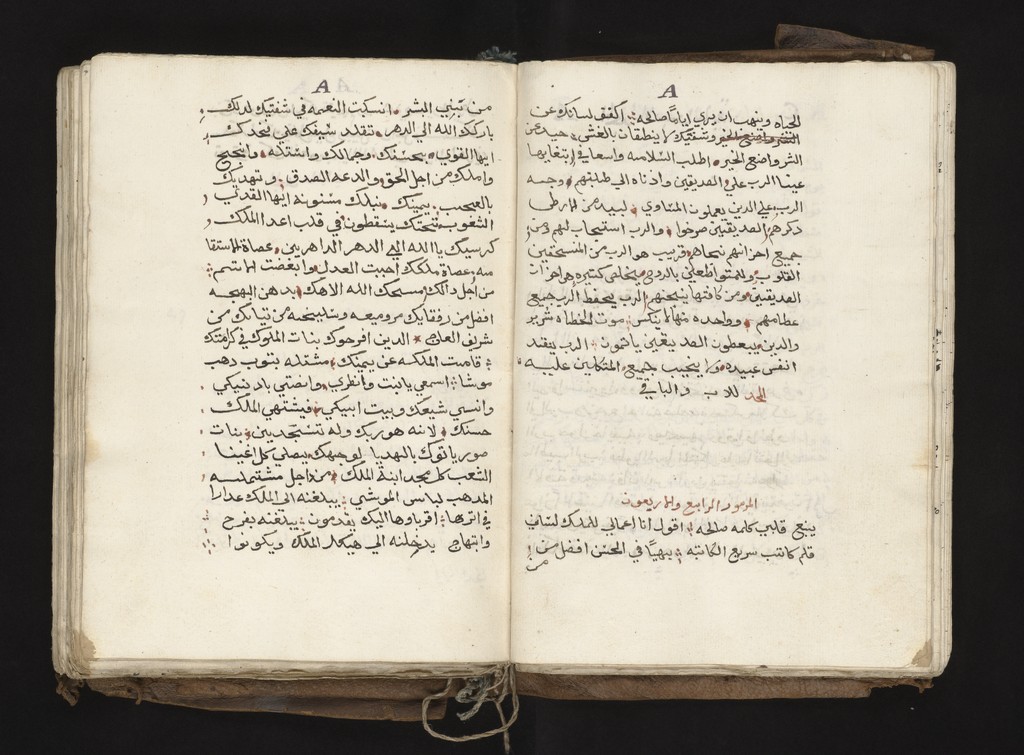 A
الحياه ويهب ان يري اياماً صالحه اكفف لسانك عن
الشر واصنع الخير وشفتيك لا ينطقان بالغش حيد عن
الشر واصنع الخير اطلب السلامه واسعا في ابتغايها
عينا الرب علي الصديقين واذناه الي طلبتهم وجه
الرب علي الدين يعملون المساوي لبيد من الارض
ذكرهم الصديقين صرخوا والرب استجاب لهم ومن
جميع احزانهم نجاهم قريب هو الرب من المنسحقين
القلوب والمتواضعين بالروح يخلص كثيره هي احزان
الصديقين ومن كافتها ينجيهم الرب يحفظ الرب جميع
عظامهم وواحده منها لا ينكسر موت الخطاه شرير
والدين يبغضون الصديقين ياثمون الرب ينقد
انفس عبيده ولا يخيب جميع المتكلين عليه
المجد للاب والباقي
المزمور الرابع والاربعون
ينبع قلبي كلمه صالحه اقول انا اعمالي للملك لساني
قلم كاتب سريع الكاتبه بهيًا في الحسن افضل من
من
A
من بني البشر انسكبت النعمه في شفتيك لدلك
باركك الله الي الدهر تقلد سيفك علي فخدك
ايها القوي بحسنك وجمالك واستله وانجح
واملك من اجل الحق والدعه الصدق وتهديك
بالعجب يمينك نبلك مسنونه ايها القدير
الشعوب تحتك يسقطون في قلب اعدا الملك
كرسيك يا الله الي الدهر الداهرين عصاة الاستقا
مه عصاة ملكك احببت العدل وابغضت الاثم
من اجل دالك مسحك الله الاهك بدهن البهجه
افضل من رفقايك مر وميعه وسليخه من تيابك من
شريف العاج الدين افرحوك بنات الملوك في كرامتك
قامت الملكه عن يمينك مشتمله بتوب دهب
موشا اسمعي يابنت وانظري وانصتي بادنيكي
وانسي شعبك وبيت ابيكي فيشتهي الملك
حسنك لانه هو ربك وله تسجدين بنات
صور ياتوك بالهدايا لوجهك يصلي كل اغنيا
الشعب كل مجد ابنة الملك من داخل مشتمله
المدهب لباس الموشي يبلغنه الي الملك عدارا
في اترها اقرباوها اليك يقدمون يبلغنه بفرح
وابتهاج يدخلنه الي هيكل الملك ويكونوا